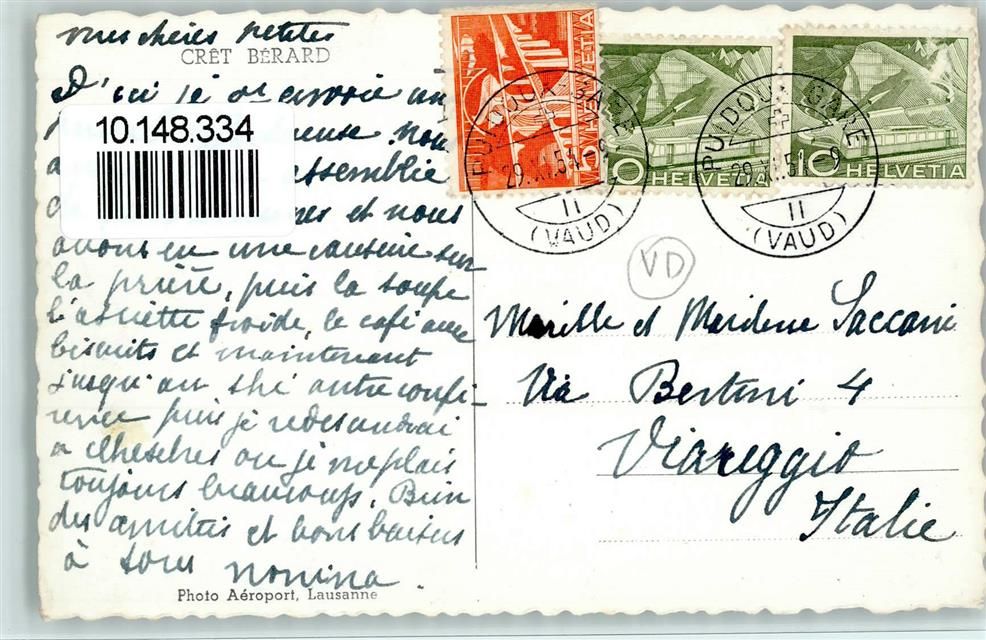 mes chères petites
CRÊT BÉRARD
D'ici je vs envoie un
10.148.334
euse. Nous
assemblée
et nous
avons eu une causerie sur
la prière, puis la soupe
l'assiette froide, le café avec
biscuits et maintenant
jusqu'au thé autre confé-
rence puis je redescendrai
a Chesebres ou je me plais
toujours beaucoup. Bien
des amitiés et bons baisers
à tous nonina.
Photo Aéroport, Lausanne
5 HELVETIA
10 HELVETIA
10 HELVETIA
PUIDOUX-GARE
29.XI.5
11
(VAUD)
PUIDOUX-GARE
29.XI.5
11
(VAUD)
VD
Mirille et Mardene Saccani
Via Bertini 4
Viareggio
Italie